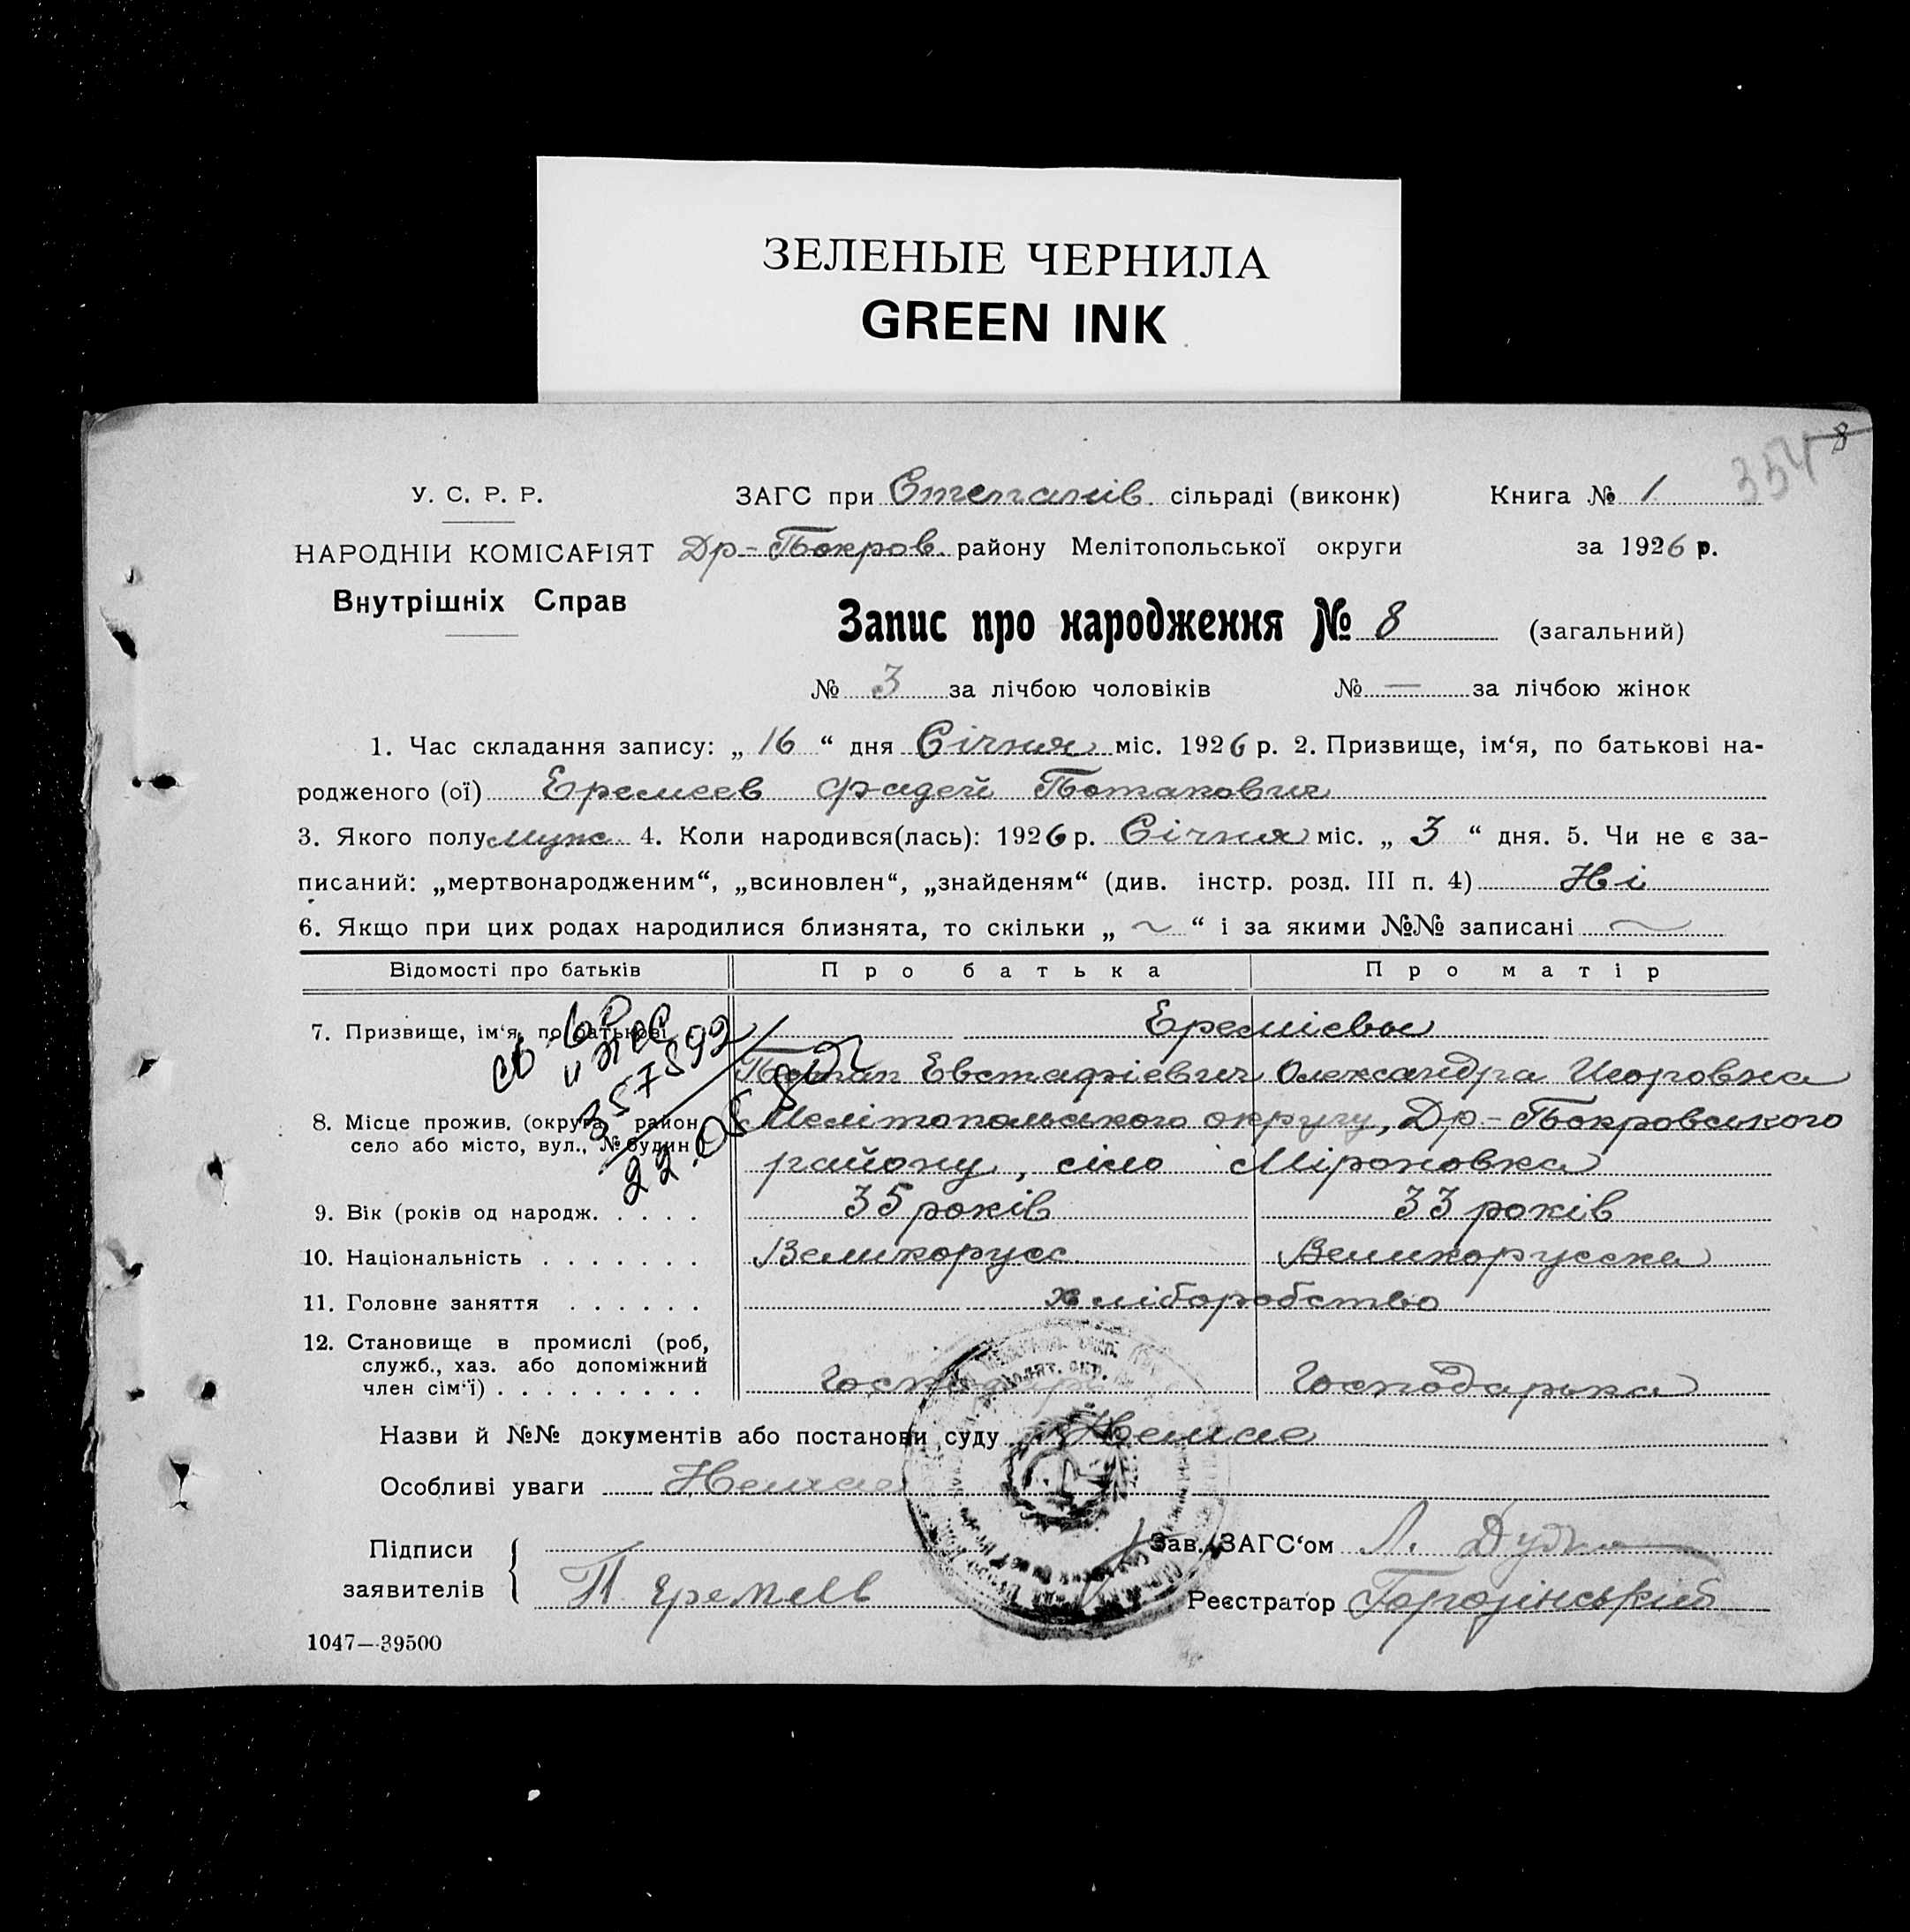 ЗЕЛЕНЫЕ ЧЕРНИЛА
GREEN INK
354 8
У. С. Р. Р.
ЗАГС при Степанів. сільраді (виконк)
Книга № 1
НАРОДНІЙ КОМІСАРІЯТ
Др-Покров. району Мелітопольської округи
за 1926 р.
Внутрішніх Справ
Запис про народження № 8 (загальний)
№ 3 за лічбою чоловіків № — за лічбою жінок
1. Час складання запису: „ 16 “ дня Січня міс. 1926 р. 2. Призвище, ім‘я, по батькові на-
родженого (ої) Еремеев Фадей Потапович
3. Якого полу муж. 4. Коли народився(лась): 1926 р. Січня міс. „ 3 “ дня. 5. Чи не є за-
писаний: „мертвонародженим“, „всиновлен“, „знайденям“ (див. інстр. розд. III п. 4) Ні
6. Якщо при цих родах народилися близнята, то скільки „ ~ “ і за якими №№ записані ~
Відомості про батьків Про батька Про матір
7. Призвище, ім‘я, по батькові Еремієвы
Потап Евстафіевич Олександра Игоровна
8. Місце прожив. (округа, район, Мелітопольського округу, Др-Покровського
село або місто, вул., № будин.) району, село Міроновка
9. Вік (років од народж. . . . . 35 років 33 років
10. Національність . . . . . . . Великорусс Великорусска
11. Головне заняття . . . . . . хліборобство
12. Становище в промислі (роб,
служб., хаз. або допоміжний
член сім‘ї) . . . . . . . . . Господарь Господарька
357592
22.05.80г
Назви й №№ документів або постанови суду Немае
Особливі уваги Немае
Підписи
заявителів
П Еремеев
Зав. ЗАГС‘ом Л. Дудка
Реєстратор
1047—39500